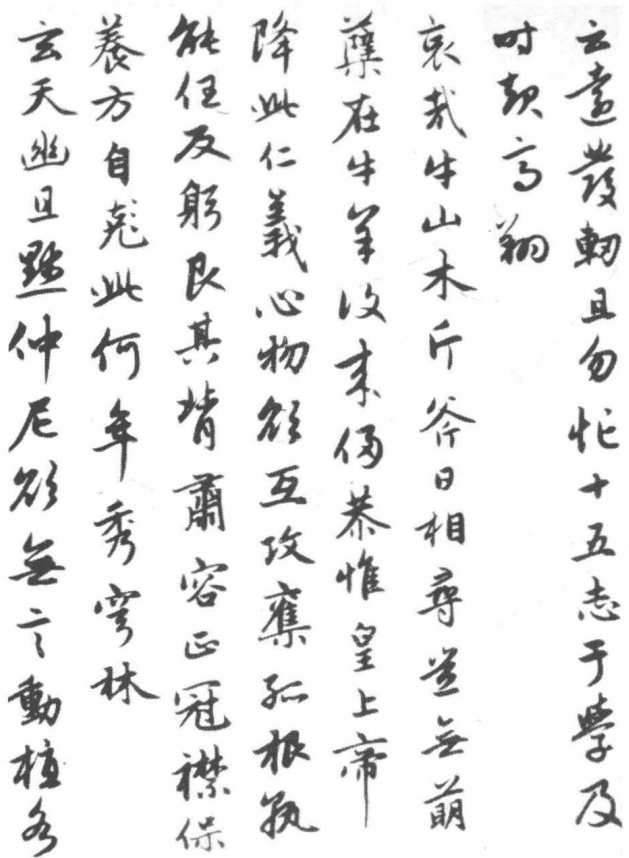 云遠發軔且勿忙十五志于學及
时起高翔
哀哉牛山木斤斧日相尋豈無萌
蘖在牛羊復来侵恭惟皇上帝
降此仁義心物欲互攻奪孤根孰
能任反躬艮其背肅容正冠襟保
養方自兹此何年秀穹林
玄天幽且默仲尼欲無言動植各